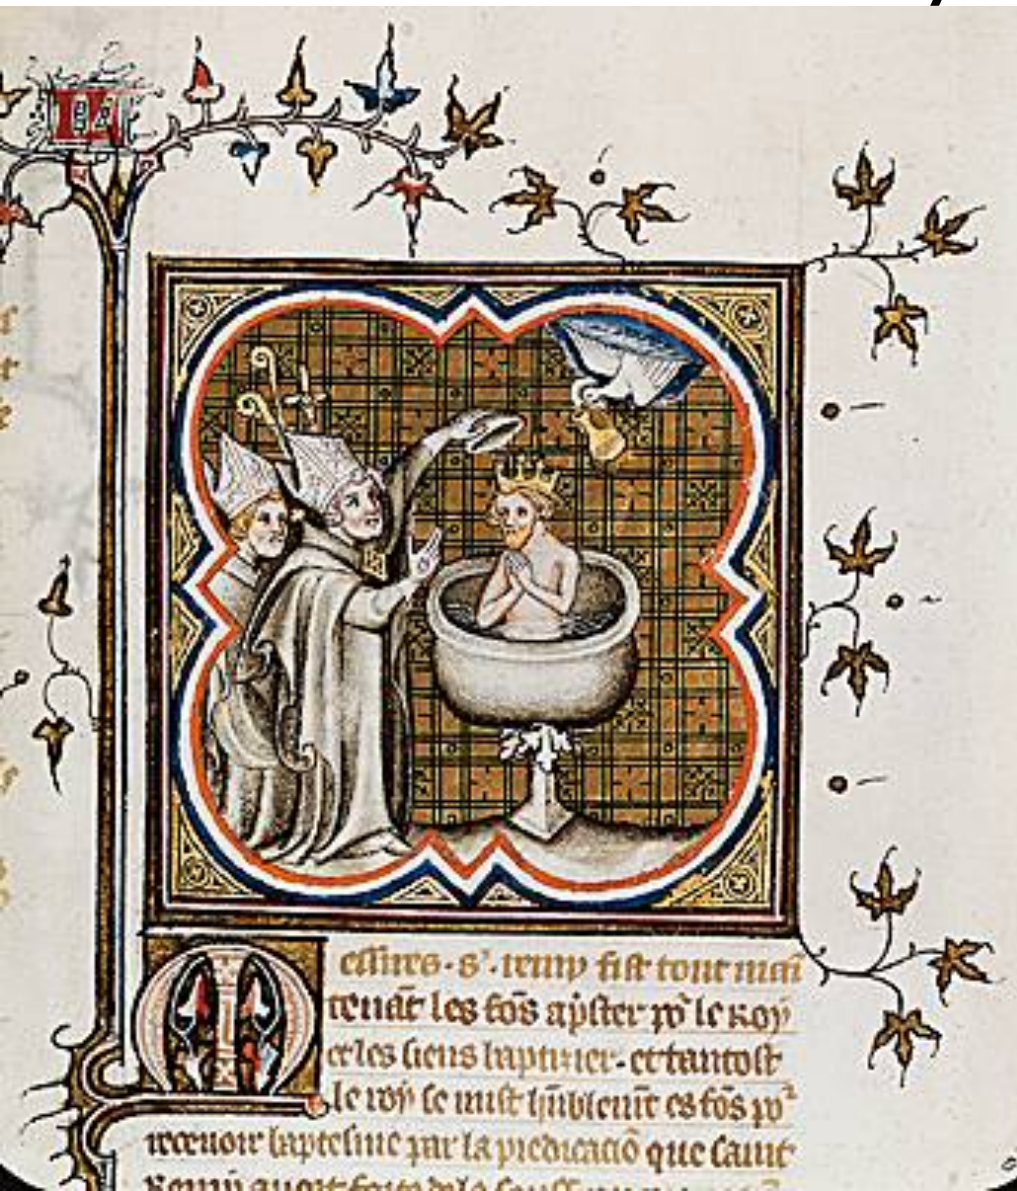 Messires .s'. remy fist tout mai(n)
tenāt les fōs ap̄ster po' le Roy
et les siens baptizier . et tantost
le roy se mist hūblemēt es fōs po'
recevoir baptesme par la predicaciō que saint
Remy avoit